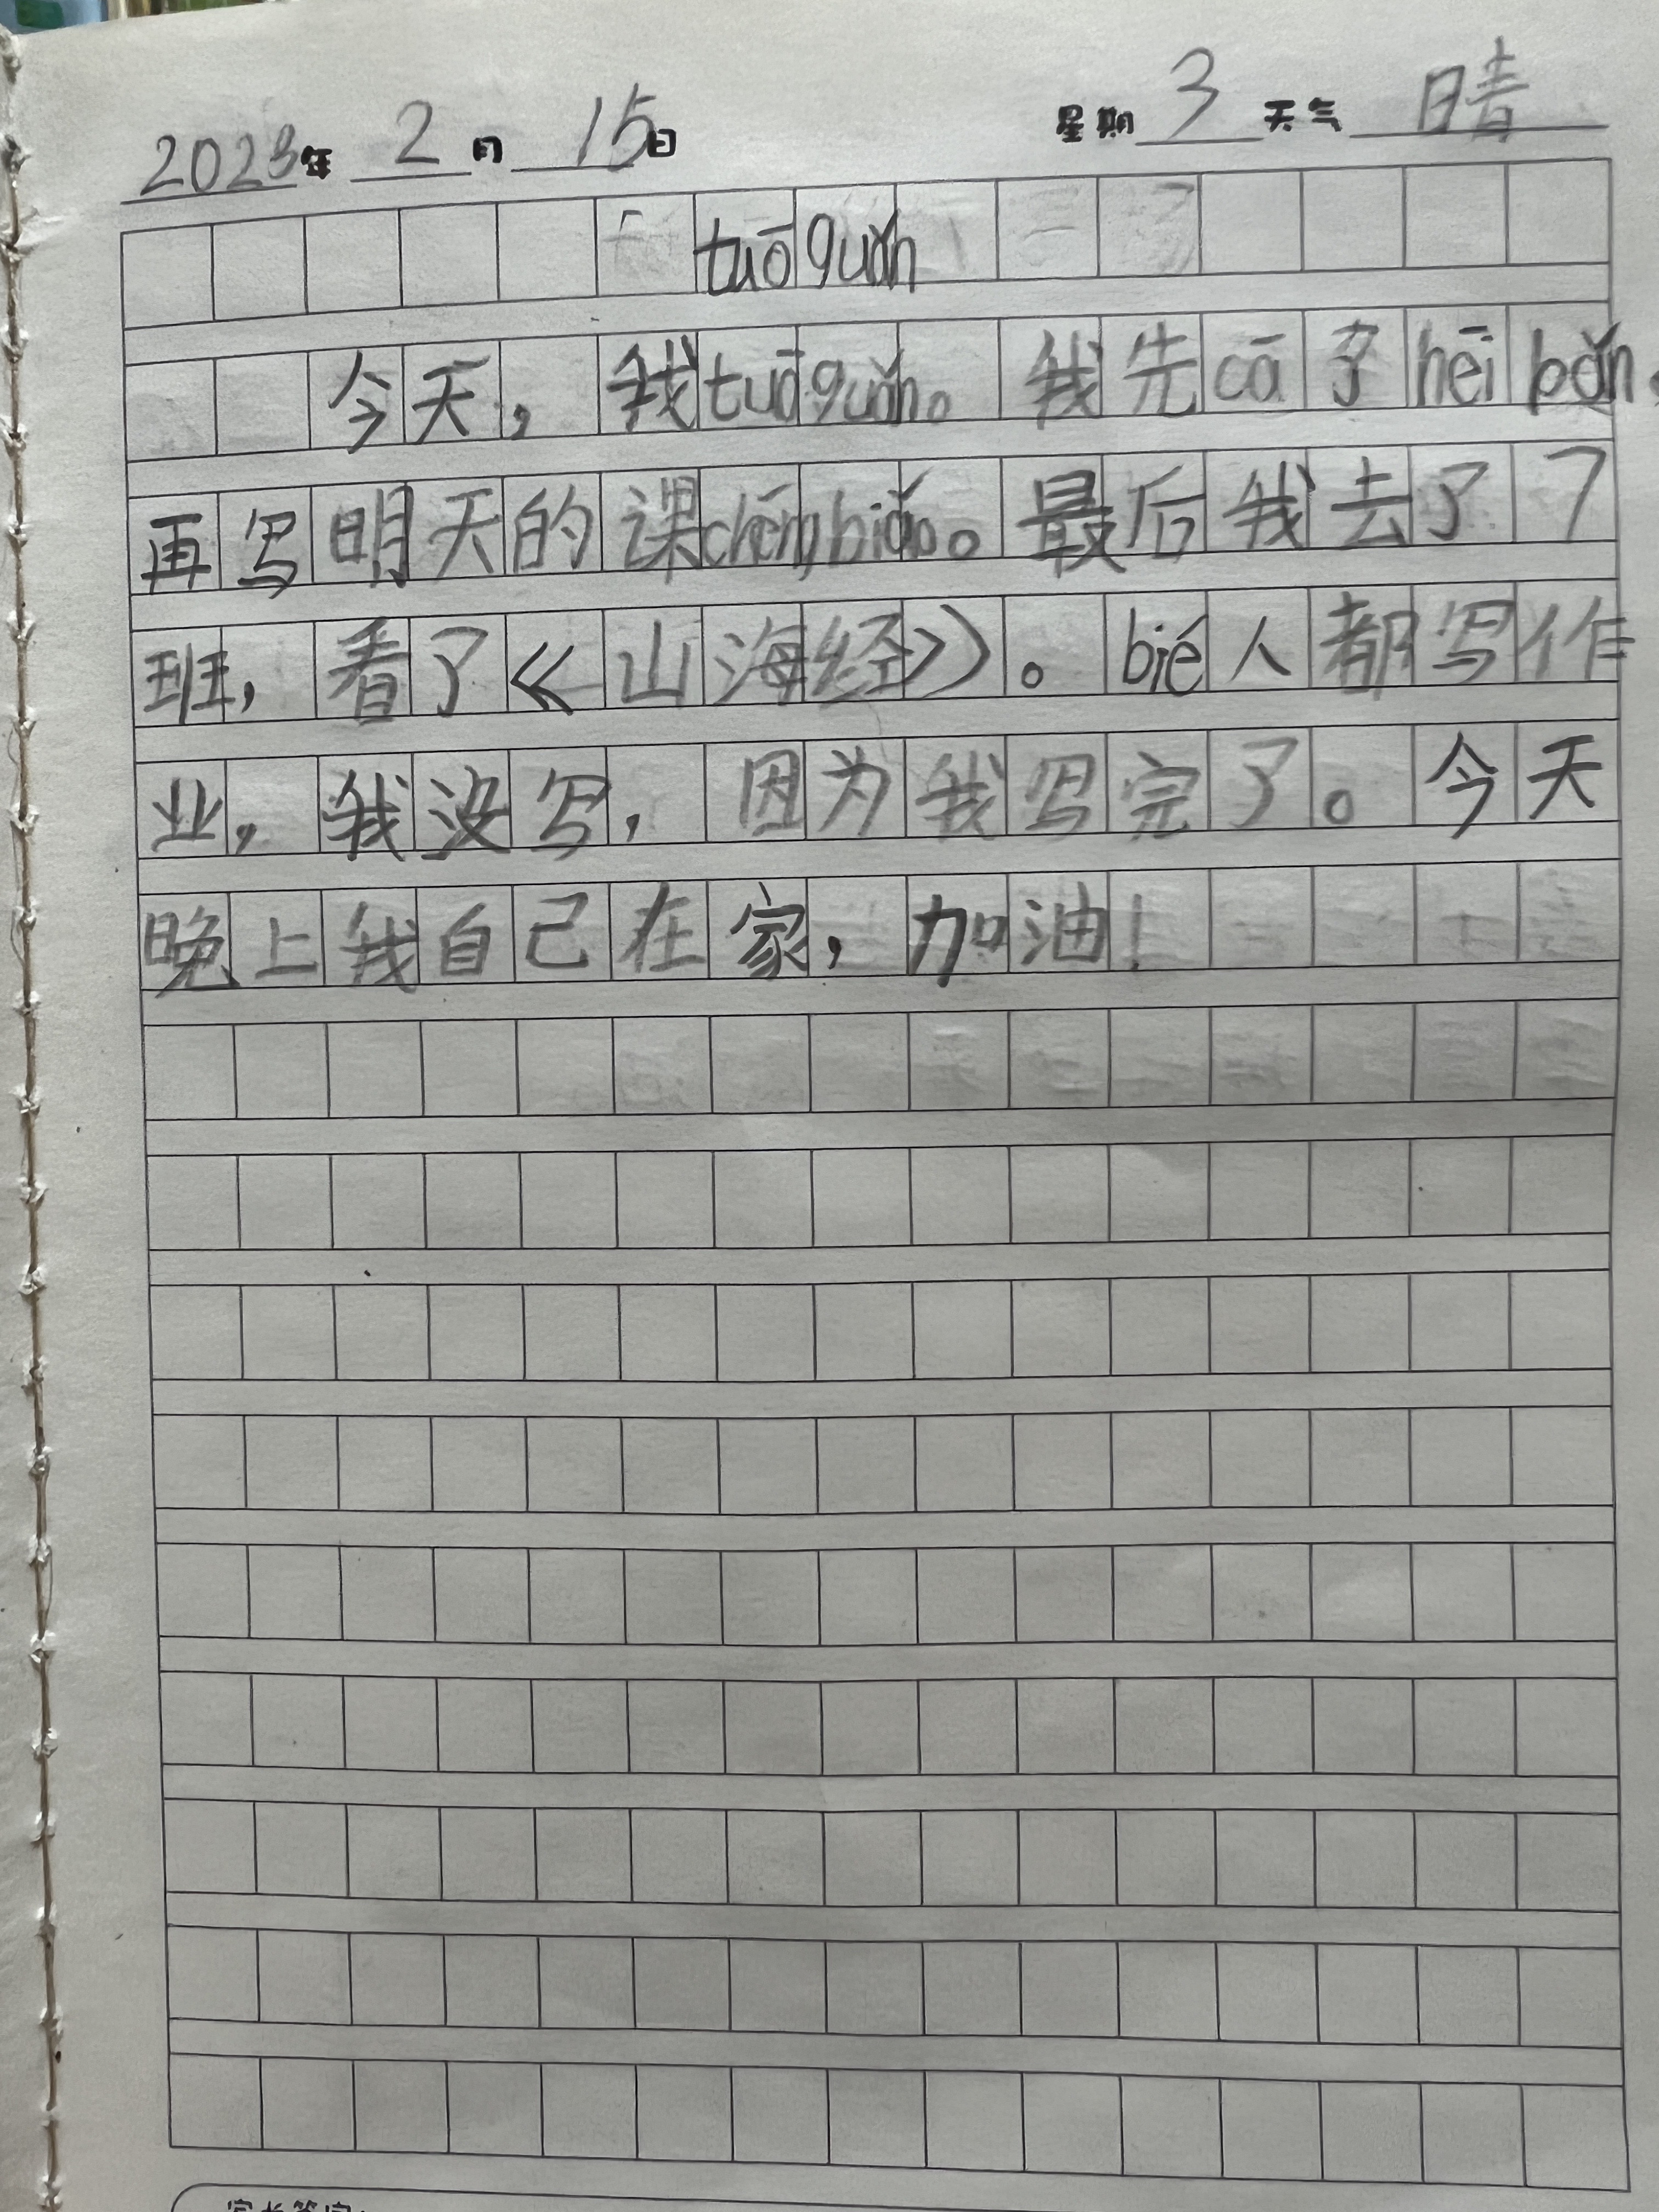 2023年 2 月 15日 星期 3 天气 晴
tuō guǎn
今天，我tuō guǎn。我先cā了hēi bǎn，
再写明天的课chéng biǎo。最后我去了7
班，看了《山海经》。bié人都写作
业，我没写，因为我写完了。今天
晚上我自己在家，加油！